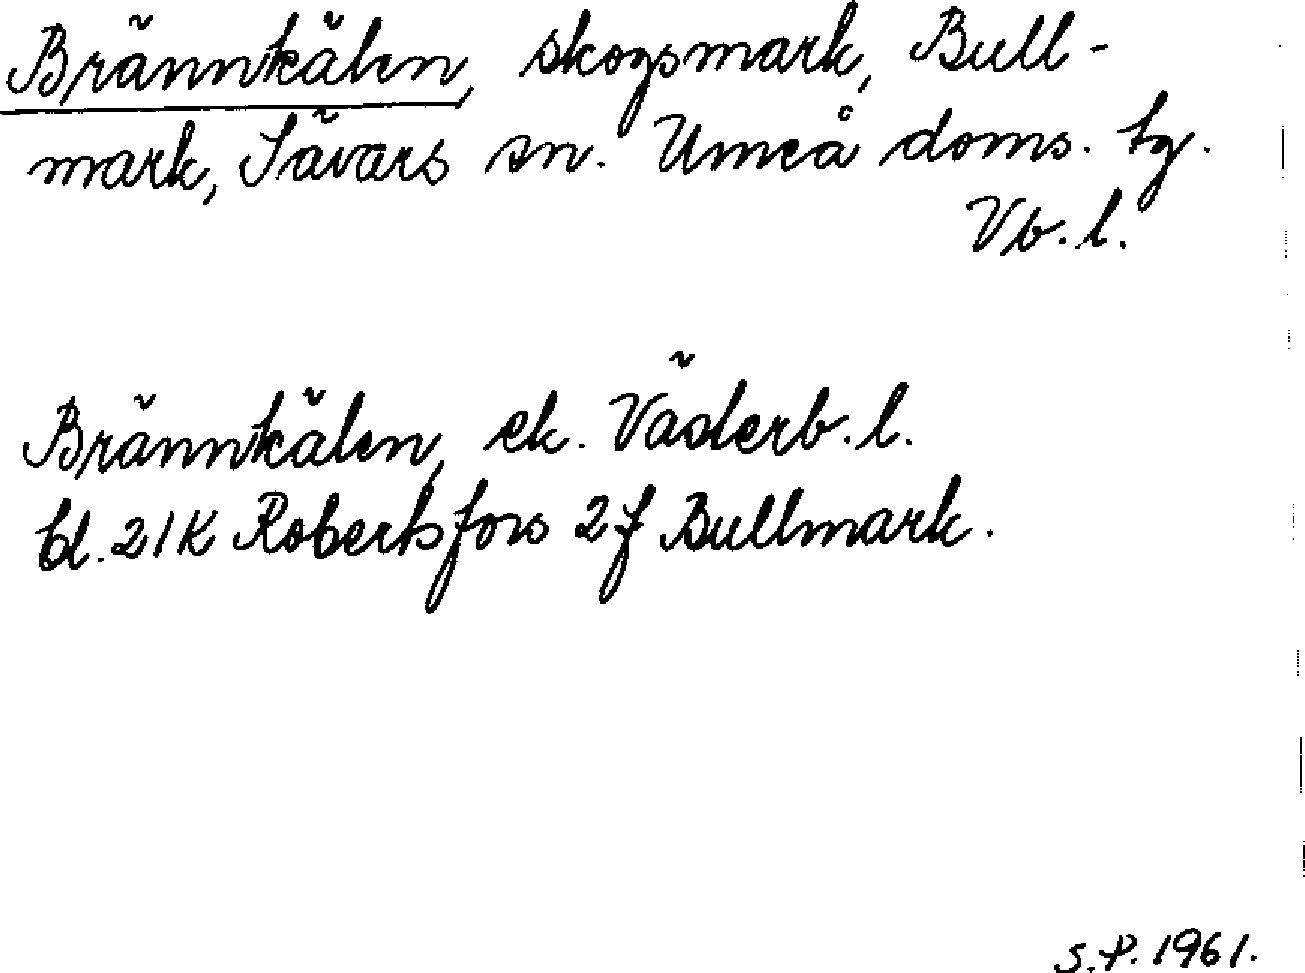 Brännkälen, skogsmark, Bull-
mark, Sävars sn. Umeå doms. tg.
Vb. l.
Brännkälen, ek. Väderb. l.
bl. 21K Robertsfors 2f Bullmark.
S.P. 1961.